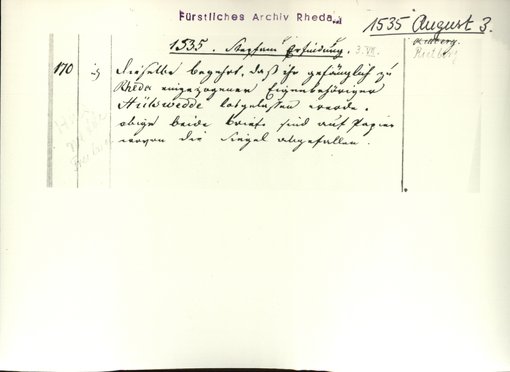 Fürstliches Archiv Rheda
1535 August 3.
1535. Stephani Erfindung. 3. VIII.
Rietberg
170 dieselbe begehrt, daß ihr gefänglich zu
Rheda eingezogener Eigenbehöriger
Hülswedde losgelassen werde.
obige beide Briefe sind auf Papier
wovon die Siegel abgefallen.